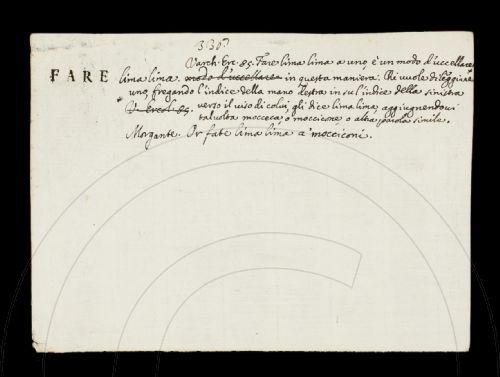 330?
Varch. Erc. 85. Fare lima lima a uno è un modo d'uccellare
FARE lima lima. modo d'uccellare in questa maniera. Chi vuole dileggiare
uno, fregando l'indice della mano destra in su l'indice della sinistra
V. Ercol. 85. verso il viso di colui, gli dice lima lima, aggiugnendovi
talvolta mocceca, o moccicone o altra parola simile.
Morgante. Or fate lima lima a' mocciconi.